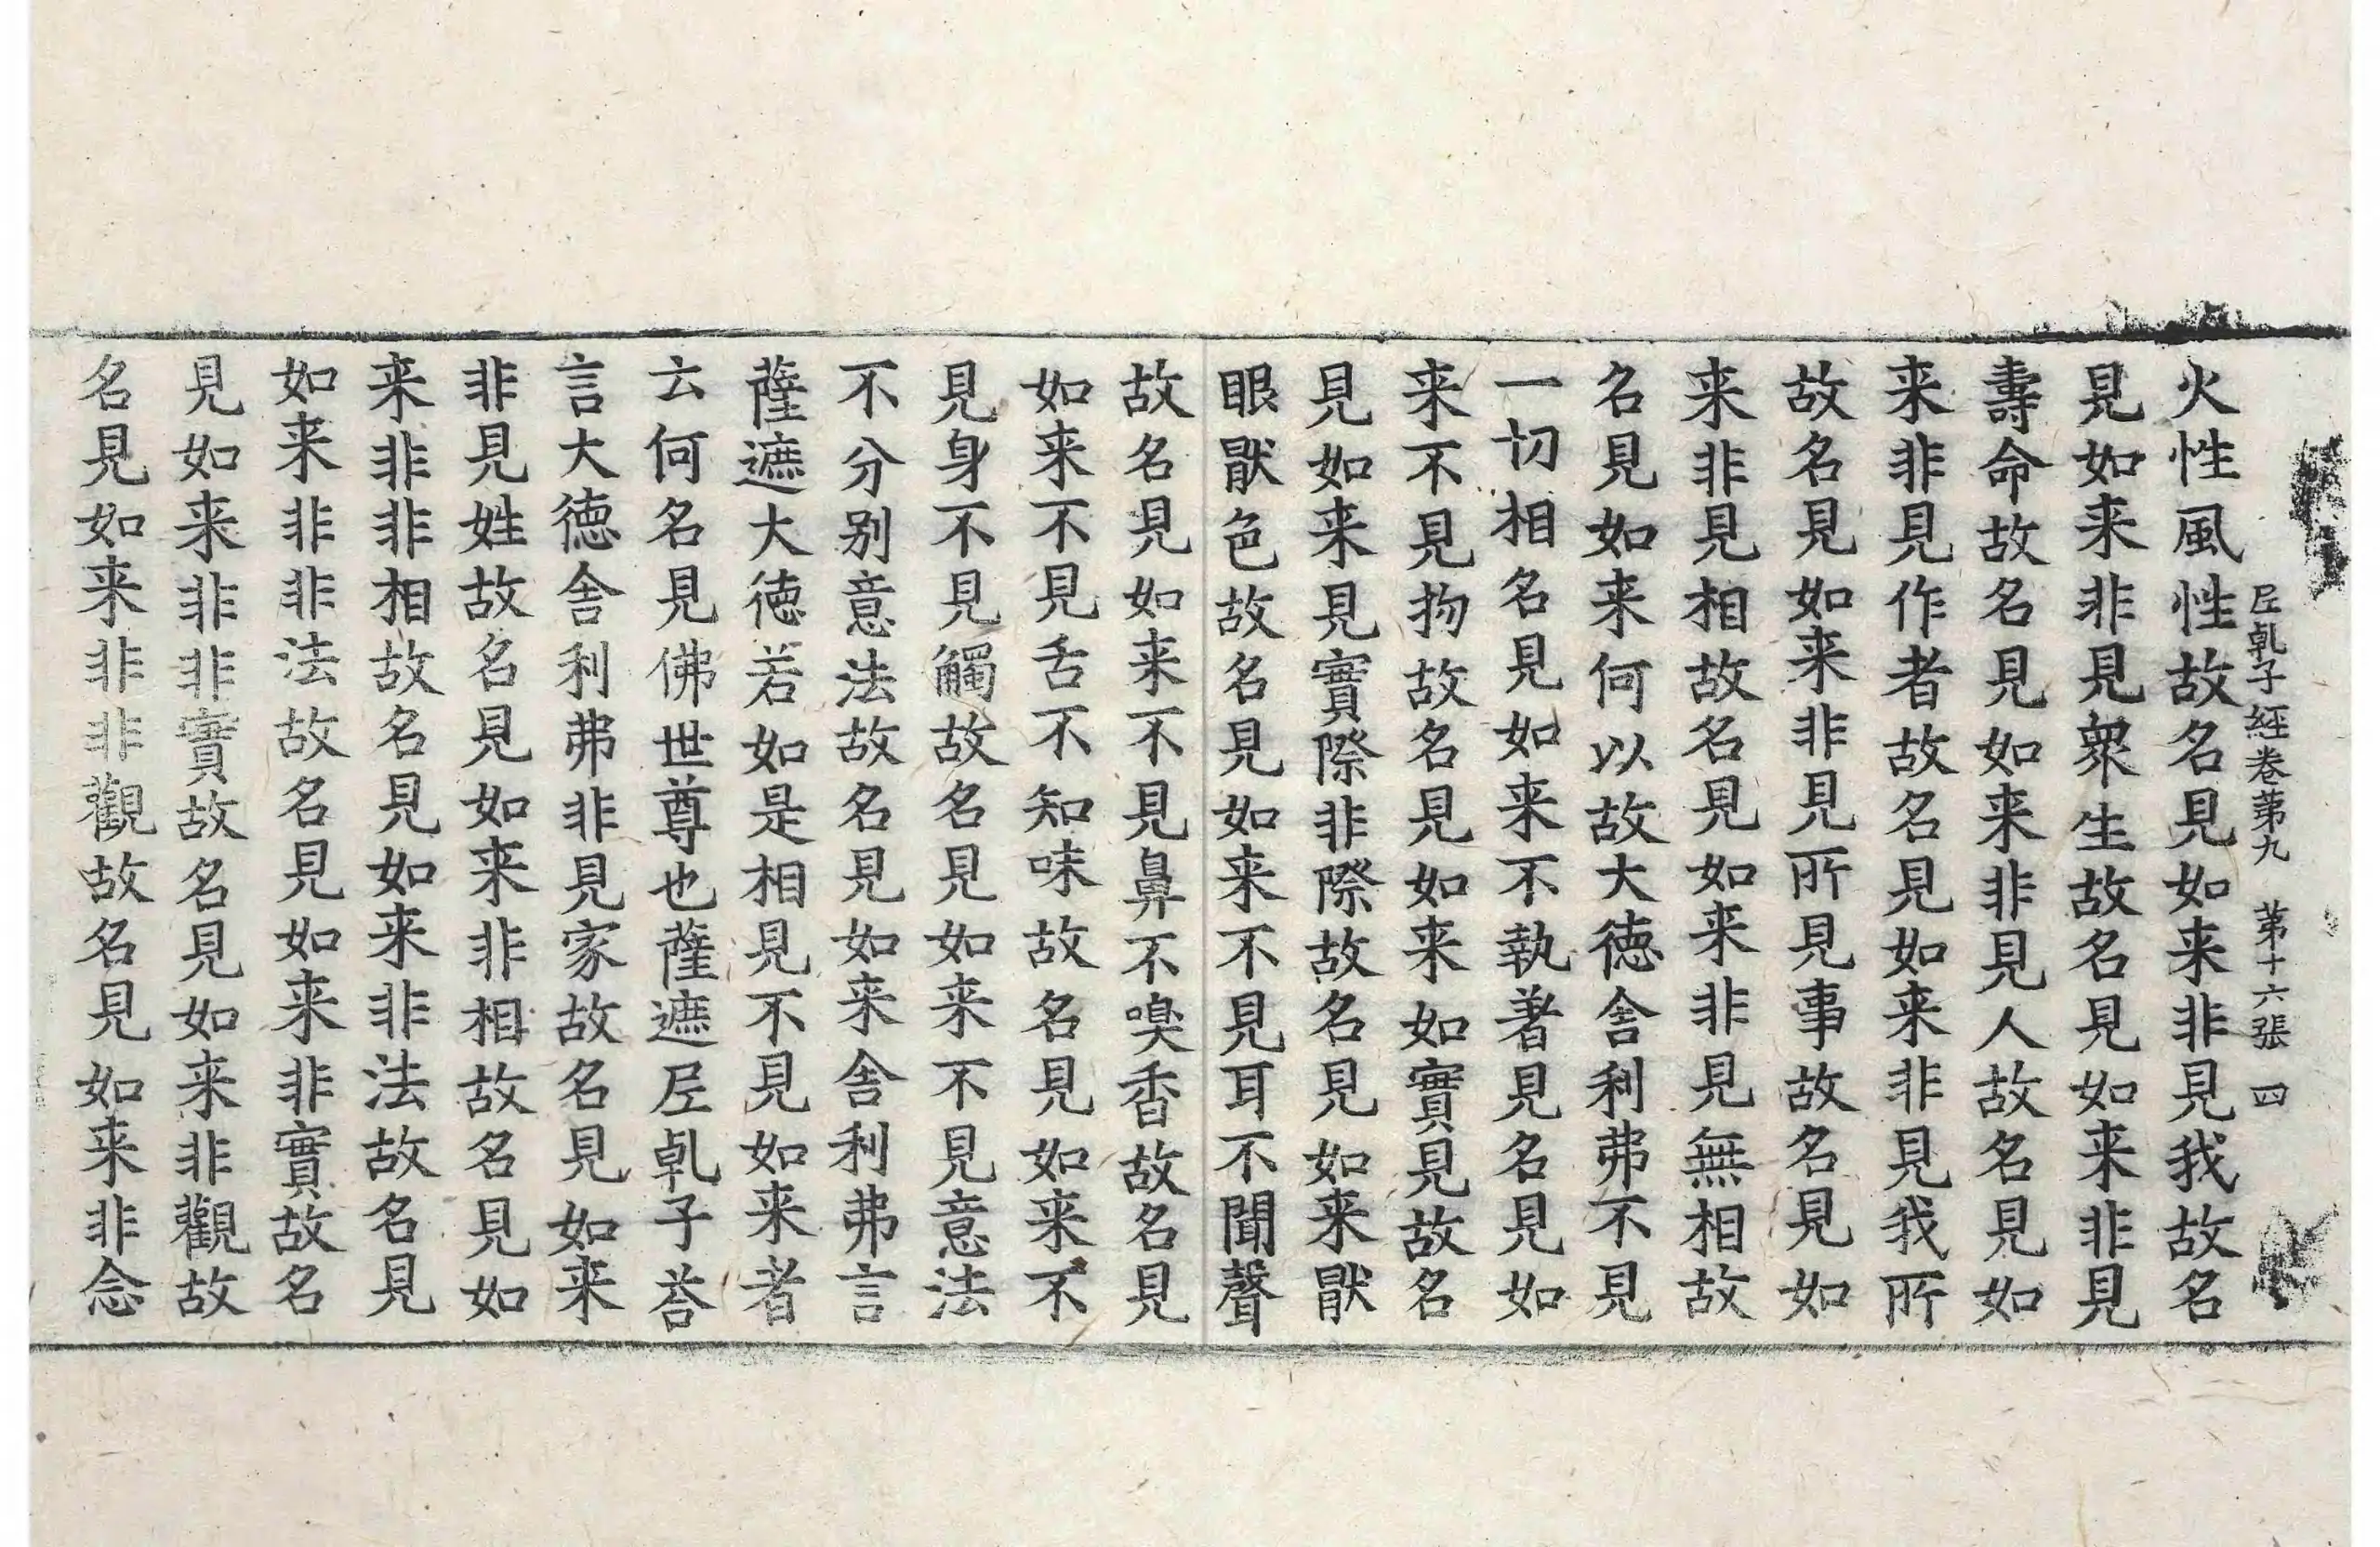 𡰱乹子經卷第九　第十六張　四
火性風性故名見如来非見我故名
見如来非見衆生故名見如来非見
壽命故名見如来非見人故名見如
来非見作者故名見如来非見我所
故名見如来非見所見事故名見如
来非見相故名見如来非見無相故
名見如来何以故大德舎利弗不見
一切相名見如来不執著見名見如
来不見物故名見如来如實見故名
見如来見實際非際故名見如来猒
眼猒色故名見如来不見耳不聞聲
故名見如来不見鼻不嗅香故名見
如来不見舌不知味故名見如来不
見身不見觸故名見如来不見意法
不分别意法故名見如来舎利弗言
薩遮大德若如是相見不見如来者
云何名見佛世尊也薩遮𡰱乹子荅
言大德舎利弗非見家故名見如来
非見姓故名見如来非相故名見如
来非非相故名見如来非法故名見
如来非非法故名見如来非實故名
見如来非非實故名見如来非觀故
名見如来非非觀故名見如来非念